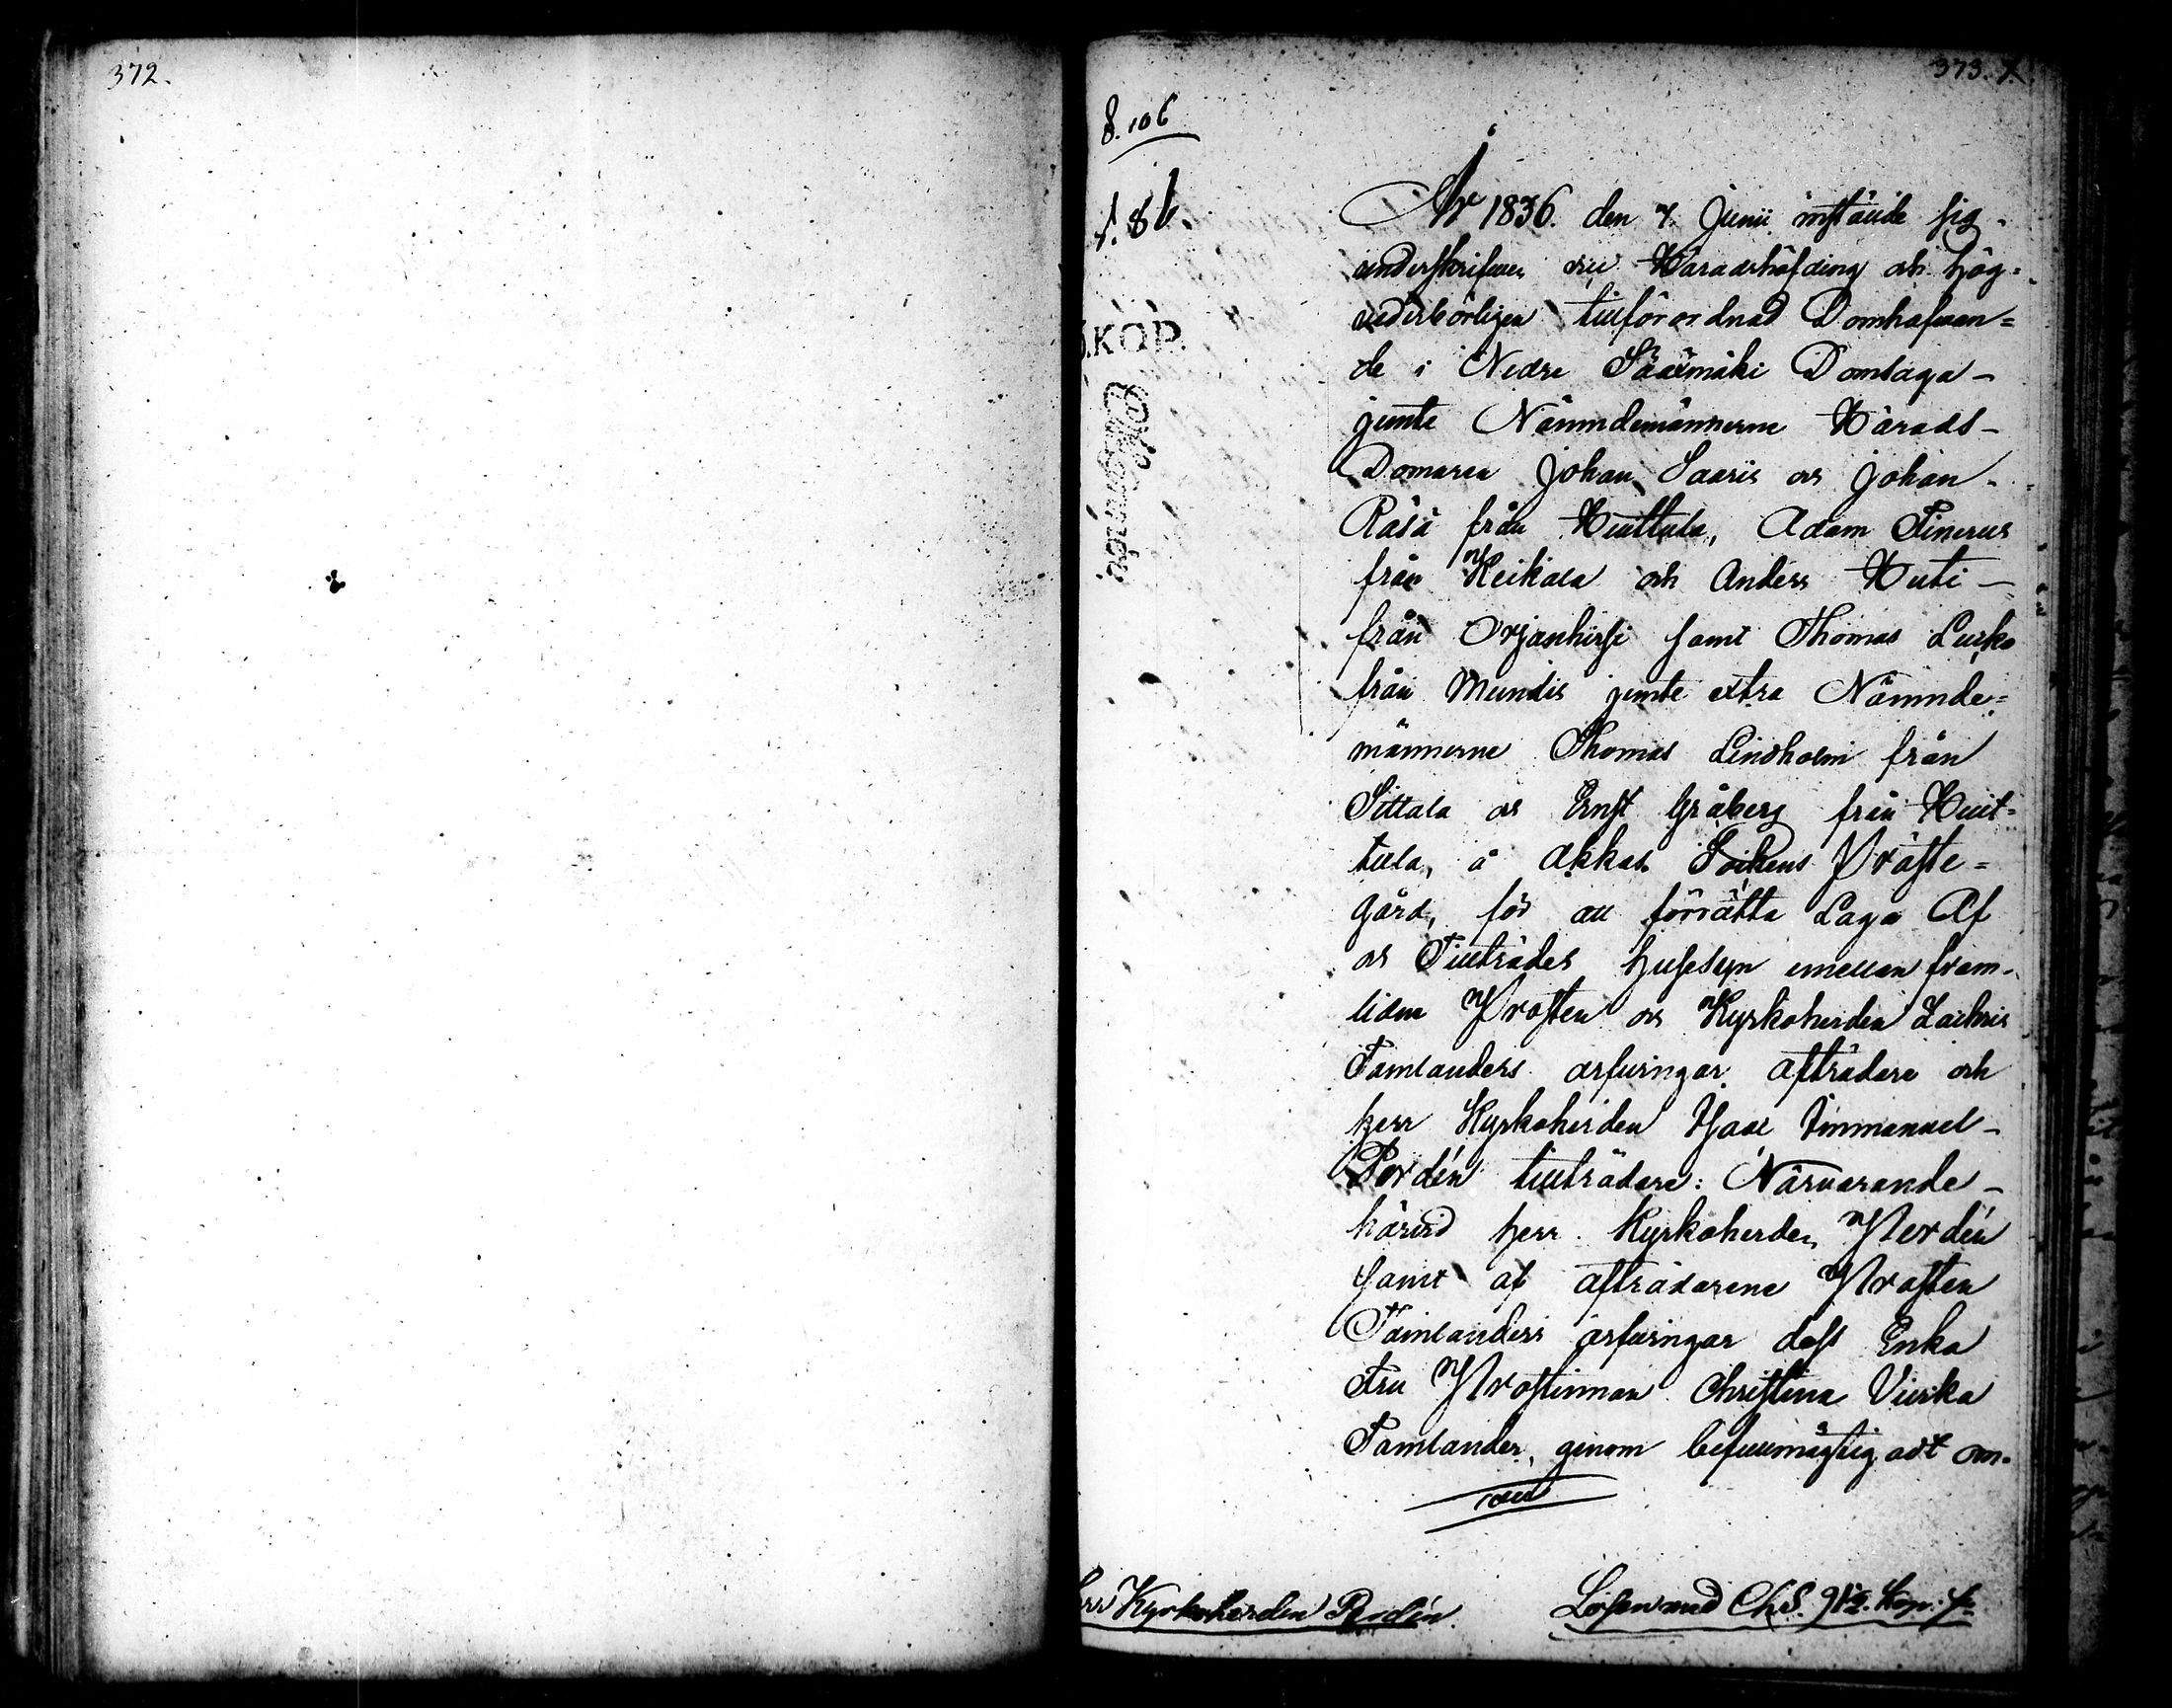 372.
373.
8.106
1.86.
.KOP.
År 1836. den 7. Junii instälde sig
underskrifven vice Häradshöfding och hög=
vederbörligen tillförordnad Domhafvan=
de i Nedre Sääxmäki Domsaga –
jemte Nämndemännerne Härads –
Domaren Johan Saaris och Johan
Räsä från Huittula, Adam Finerus
från Keikala och Anders Huti –
från Orjanhirsi samt Thomas Lusko
från Mundis jemte extra Nämnde=
männerne Thomas Lindholm från
Sittala och Ernst Gråberg från Huit=
tula, å Akkas Sockens Präste=
gård, för att förrätta Laga Af
och Tillträdes Husesyn emellan fram–
lidne Prosten och Kyrkoherden Zachris
Tamlanders arfvingar afträdare och
Herr Kyrkoherden Isaac Immanuel –
Perdén tillträdare: Närvarande –
härvid Herr Kyrkoherden Perdén
samt af afträdarene Prosten
Tamlanders arfvingar dess Enka
Fru Prostinnan Christina Virika
Tamlander, genom befullmägtigadt om–
Kyrkoherden Perdén.
Lösen med